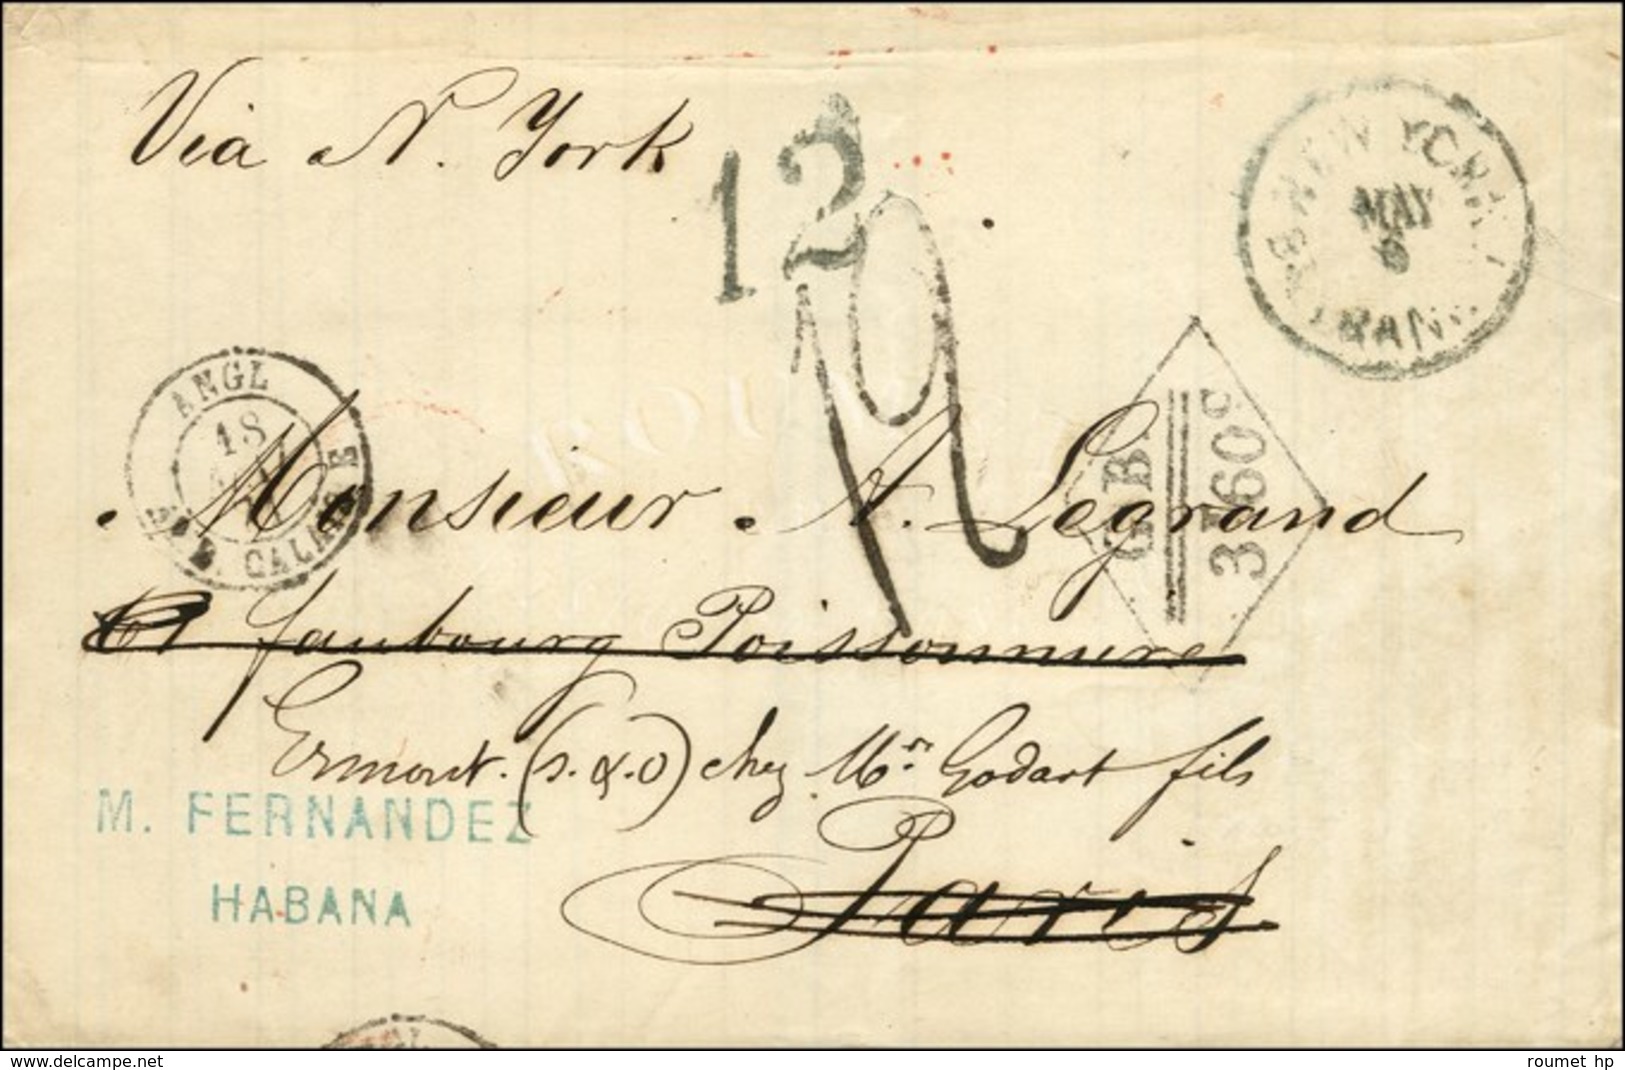 Via N. York
12
NEW YORK
MAY
6
TRAN
ANGL
18
CALAIS E
GB
3F60c
Monsieur A. Legrand
faubourg Poissonniere
Ermont. (S. & O) chez Mr. Godart fils
M. FERNANDEZ
HABANA
Paris
delcampe.net
roumet hp